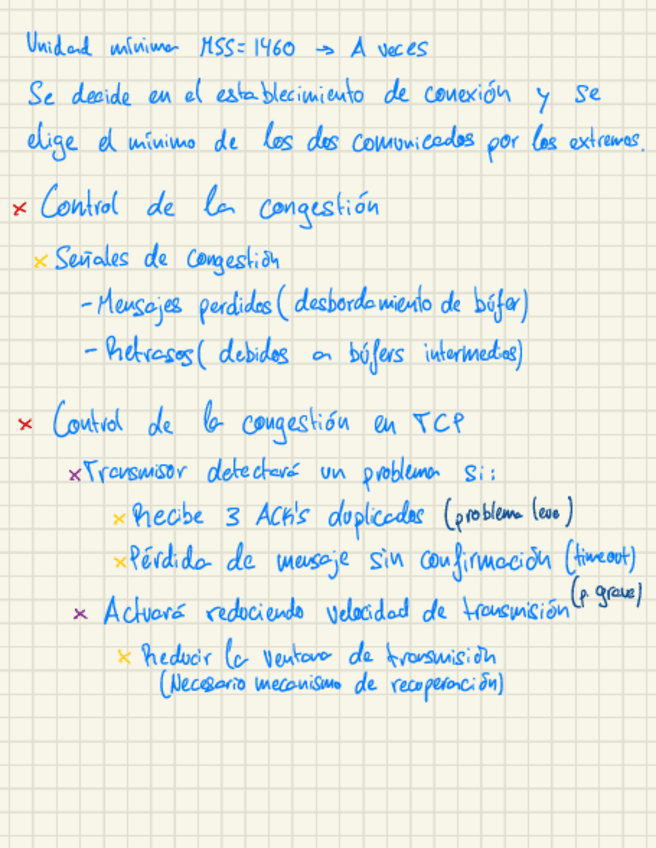 Unidad mínima MSS=1460 → A veces
Se decide en el establecimiento de conexión y se
elige el mínimo de los dos comunicados por los extremos.
× Control de la congestión
× Señales de congestión
- Mensajes perdidos (desbordamiento de búfer)
- Retrasos (debidos a búfers intermedios)
× Control de la congestión en TCP
× Transmisor detectará un problema si:
× Recibe 3 ACK's duplicados (problema leve)
× Pérdida de mensaje sin confirmación (timeout)
(p. grave)
× Actuará reduciendo velocidad de transmisión
× Reducir la ventana de transmisión
(Necesario mecanismo de recuperación)